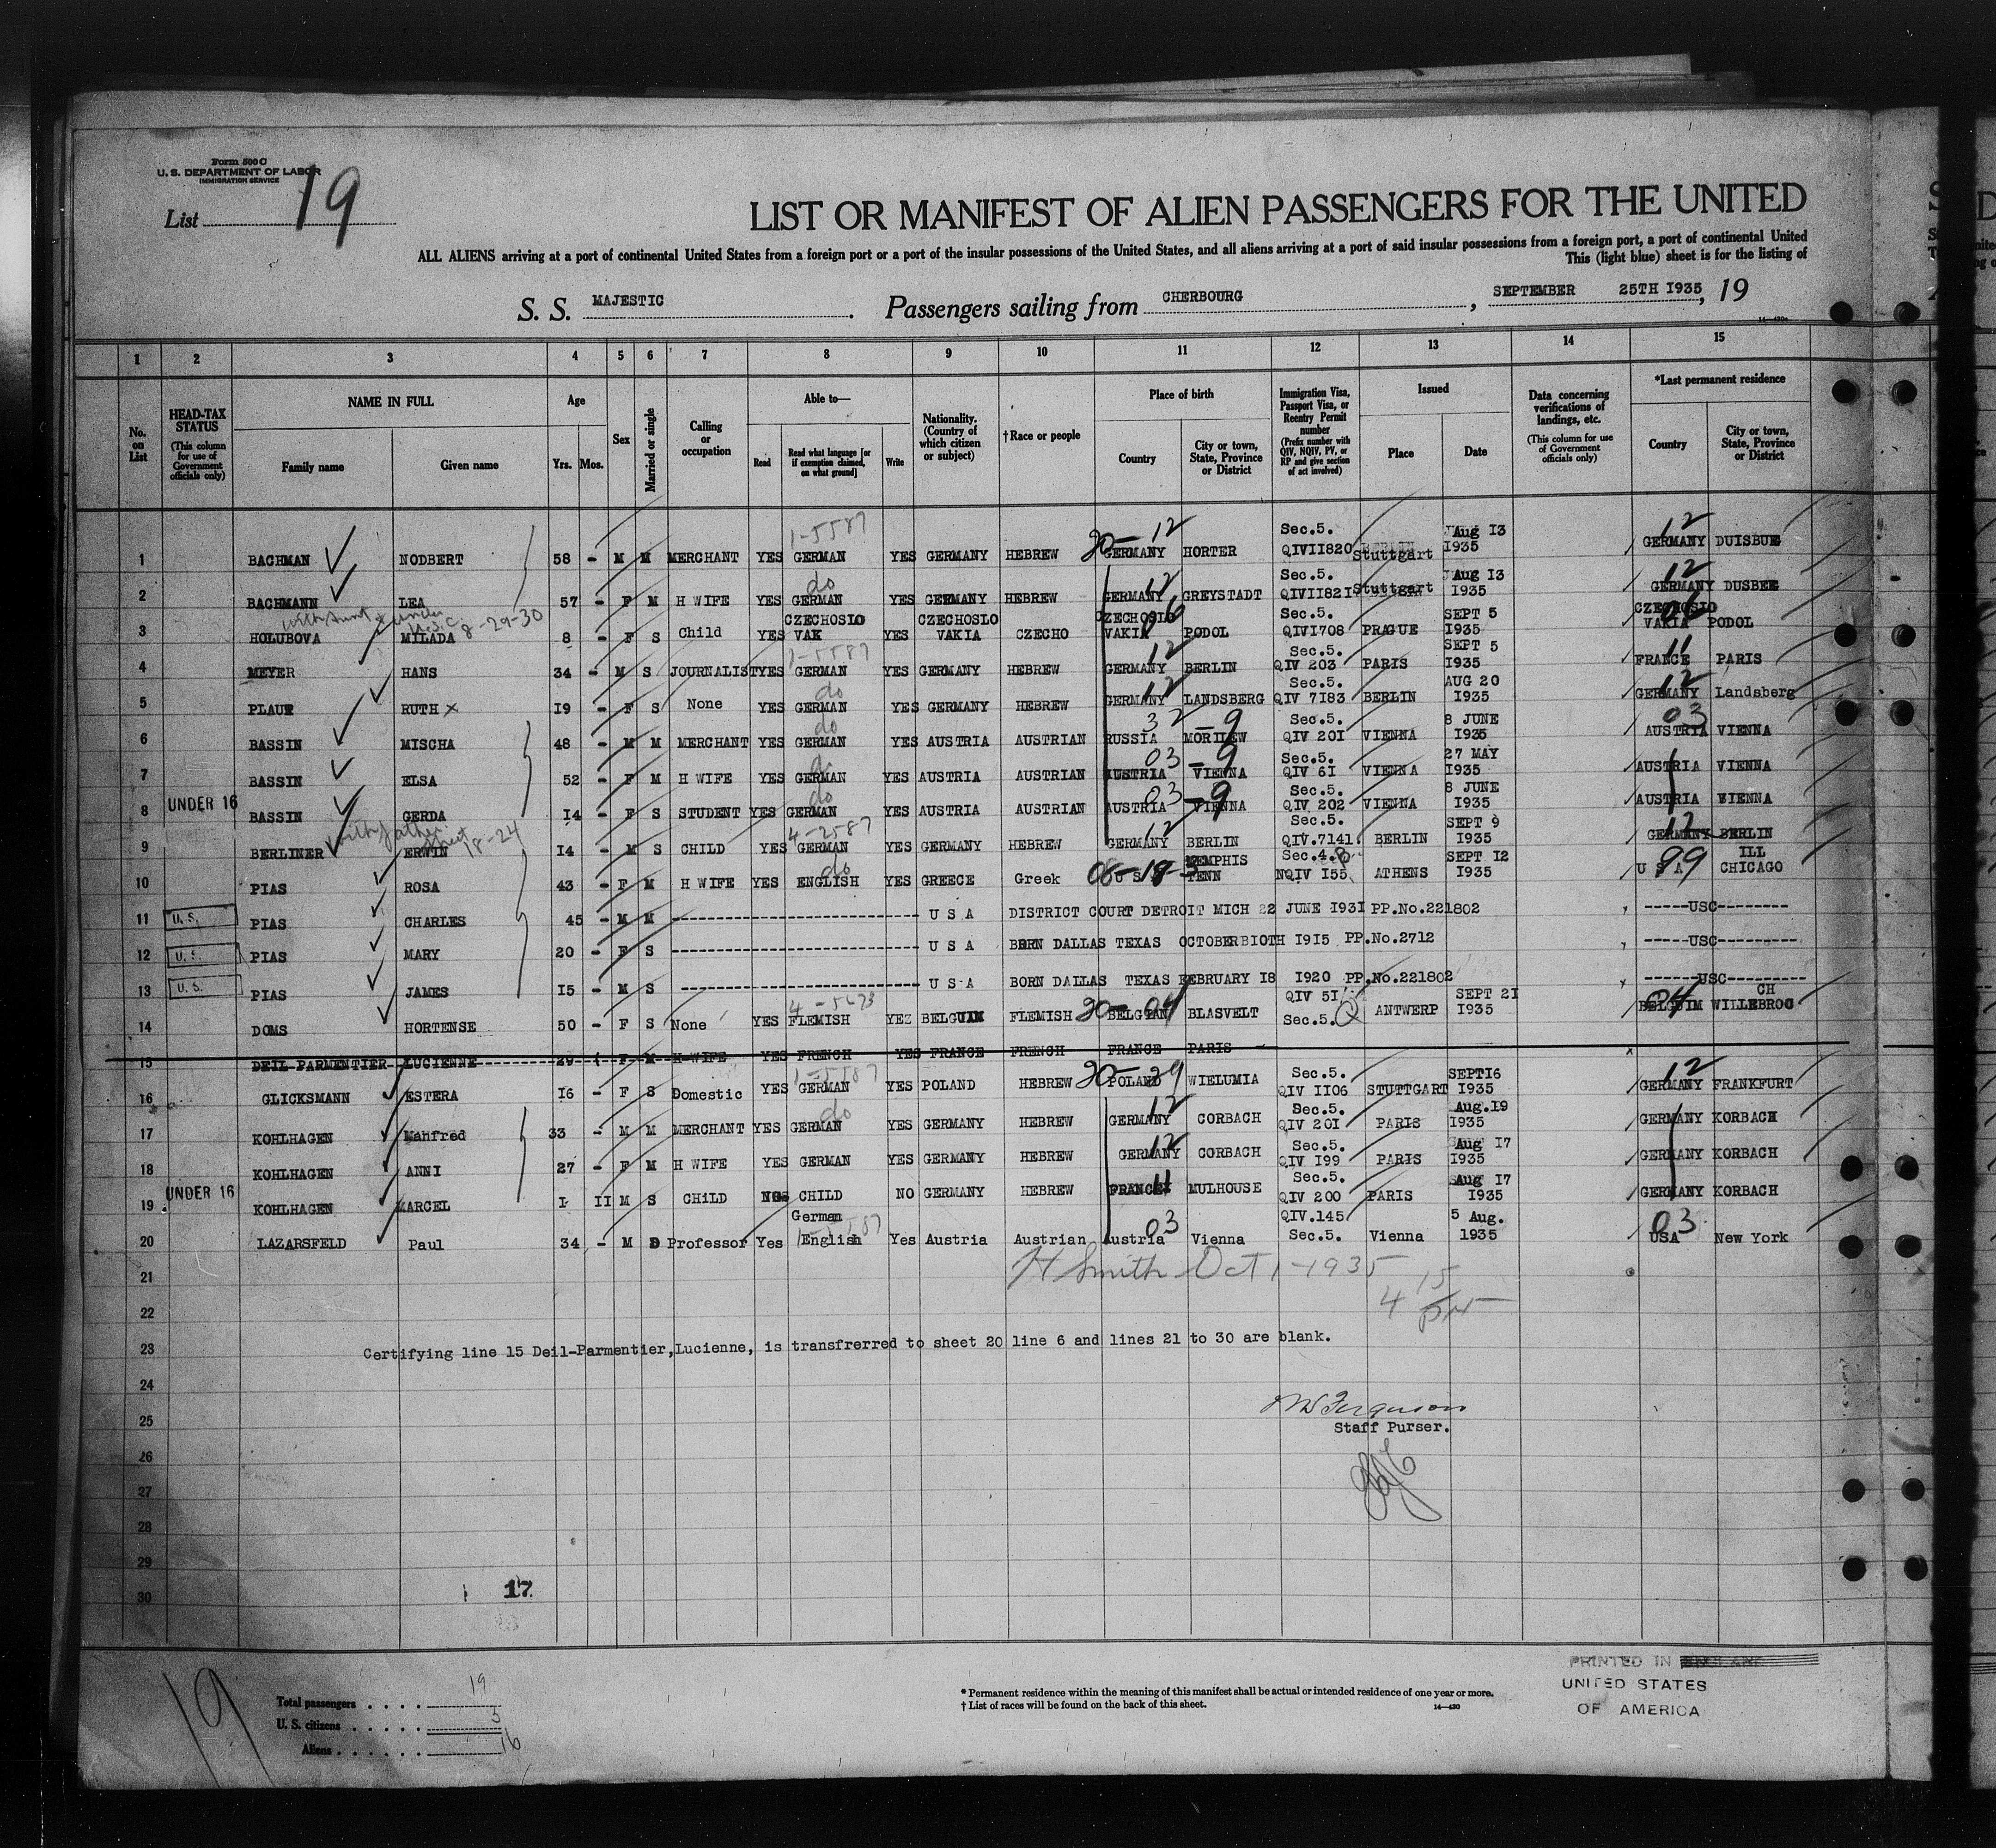 Form 500 C
U. S. DEPARTMENT OF LABOR
IMMIGRATION SERVICE
List 19
LIST OR MANIFEST OF ALIEN PASSENGERS FOR THE UNITED
ALL ALIENS arriving at a port of continental United States from a foreign port or a port of the insular possessions of the United States, and all aliens arriving at a port of said insular possessions from a foreign port, a port of continental United
This (light blue) sheet is for the listing of
S. S. MAJESTIC. Passengers sailing from CHERBOURG, SEPTEMBER 25TH I935, 19
1 2 3 4 5 6 7 8 9 10 11 12 13 14 15
No. on List
HEAD-TAX STATUS (This column for use of Government officials only)
NAME IN FULL Family name Given name
Age Yrs. Mos.
Sex
Married or single
Calling or occupation
Able to— Read Read what language [or if exemption claimed, on what ground] Write
Nationality. (Country of which citizen or subject)
†Race or people
Place of birth Country City or town, State, Province or District
Immigration Visa, Passport Visa, or Reentry Permit number (Prefix number with QIV, NQIV, PV, or RP and give section of act involved)
Issued Place Date
Data concerning verifications of landings, etc. (This column for use of Government officials only)
*Last permanent residence Country City or town, State, Province or District
1 BACHMAN NODBERT 58 - M M MERCHANT YES GERMAN 1-5587 YES GERMANY HEBREW 20-12 GERMANY HORTER Sec.5. QIVII820 Stuttgart Aug I3 I935 12 GERMANY DUISBUG
2 BACHMANN LEA 57 - F M H WIFE YES GERMAN do YES GERMANY HEBREW 12 GERMANY GREYSTADT Sec.5. QIVII82I Stuttgart Aug I3 I935 12 GERMANY DUSBEG
3 HOLUBOVA MYLADA with Aunt under U.S.C. 8-29-30 8 - F S Child YES CZECHOSLO VAK YES CZECHOSLO VAKIA CZECHO CZECHOSLO VAKIA 06 PODOL Sec.5. QIVI708 PRAGUE SEPT 5 I935 CZECHOSLO VAKIA PODOL
4 MEYER HANS 34 - M S JOURNALIST YES GERMAN 1-5587 YES GERMANY HEBREW 12 GERMANY BERLIN Sec.5. QIV 203 PARIS SEPT 5 I935 11 FRANCE PARIS
5 PLAUT RUTH x I9 - F S None YES GERMAN do YES GERMANY HEBREW 12 GERMANY LANDSBERG Sec.5. QIV 7I83 BERLIN AUG 20 I935 12 GERMANY Landsberg
6 BASSIN MISCHA 48 - M M MERCHANT YES GERMAN do YES AUSTRIA AUSTRIAN 32-9 RUSSIA MORILEW Sec.5. QIV 20I VIENNA 8 JUNE I935 03 AUSTRIA VIENNA
7 BASSIN ELSA 52 - F M H WIFE YES GERMAN do YES AUSTRIA AUSTRIAN 03-9 AUSTRIA VIENNA Sec.5. QIV 6I VIENNA 27 MAY I935 AUSTRIA VIENNA
8 UNDER 16 BASSIN GERDA I4 - F S STUDENT YES GERMAN do YES AUSTRIA AUSTRIAN 03-9 AUSTRIA VIENNA Sec.5. QIV 202 VIENNA 8 JUNE I935 AUSTRIA VIENNA
9 BERLINER ERWIN with father 18-24 I4 - M S CHILD YES GERMAN 4-2587 YES GERMANY HEBREW 12 GERMANY BERLIN Sec.5. QIV.7141. BERLIN SEPT 9 I935 12 GERMANY BERLIN
10 PIAS ROSA 43 - F M H WIFE YES ENGLISH do YES GREECE Greek U S A MEMPHIS TENN Sec.4.B NQIV I55 ATHENS SEPT I2 I935 99 U S A ILL CHICAGO
11 U. S. PIAS CHARLES 45 - M M ---------- U S A DISTRICT COURT DETROIT MICH 22 JUNE I93I PP.No.221802 -----USC---------
12 U. S. PIAS MARY 20 - F S ---------- U S A BORN DALLAS TEXAS OCTOBER IOTH I9I5 PP.No.2712 -----USC---------
13 U. S. PIAS JAMES I5 - M S ---------- U S A BORN DALLAS TEXAS FEBRUARY I8 I920 PP.No.221802 ------USC----------
14 DOMS HORTENSE 50 - F S None YES FLEMISH 4-5673 YEZ BELGUIM FLEMISH 20-04 BELGIAN BLASVELT QIV 5I Sec.5. Q ANTWERP SEPT 2I I935 04 BELGUIM WILLEBROC CH
15 DEIL-PARMENTIER LUCIENNE 29 F M H WIFE YES FRENCH YES FRANCE FRENCH FRANCE PARIS
16 GLICKSMANN ESTERA I6 - F S Domestic YES GERMAN 1-5587 YES POLAND HEBREW 20-29 POLAND WIELUMIA Sec.5. QIV II06 STUTTGART SEPTI6 I935 12 GERMANY FRANKFURT
17 KOHLHAGEN Manfred 33 - M M MERCHANT YES GERMAN do YES GERMANY HEBREW 12 GERMANY CORBACH Sec.5. QIV 20I PARIS Aug.19 I935 GERMANY KORBACH
18 KOHLHAGEN ANNI 27 - F M H WIFE YES GERMAN YES GERMANY HEBREW 12 GERMANY CORBACH Sec.5. QIV I99 PARIS Aug I7 I935 GERMANY KORBACH
19 UNDER 16 KOHLHAGEN MARCEL I II M S CHILD NO CHILD NO GERMANY HEBREW 11 FRANCE MULHOUSE Sec.5. QIV 200 PARIS Aug I7 I935 GERMANY KORBACH
20 LAZARSFELD Paul 34 - M D Professor Yes German English 1-5587 Yes Austria Austrian 03 Austria Vienna QIV.145 Sec.5. Vienna 5 Aug. 1935 03 USA New York
21 H Smith Oct 1-1935
22 4 15 PM
23 Certifying line 15 Deil-Parmentier,Lucienne, is transfrerred to sheet 20 line 6 and lines 21 to 30 are blank.
24
25 Ferguson
Staff Purser.
26
27
28
29
30 17
19
Total passengers . . . . 19
U. S. citizens . . . . . 3
Aliens . . . . . . 16
* Permanent residence within the meaning of this manifest shall be actual or intended residence of one year or more.
† List of races will be found on the back of this sheet. 14—430
PRINTED IN
UNITED STATES
OF AMERICA